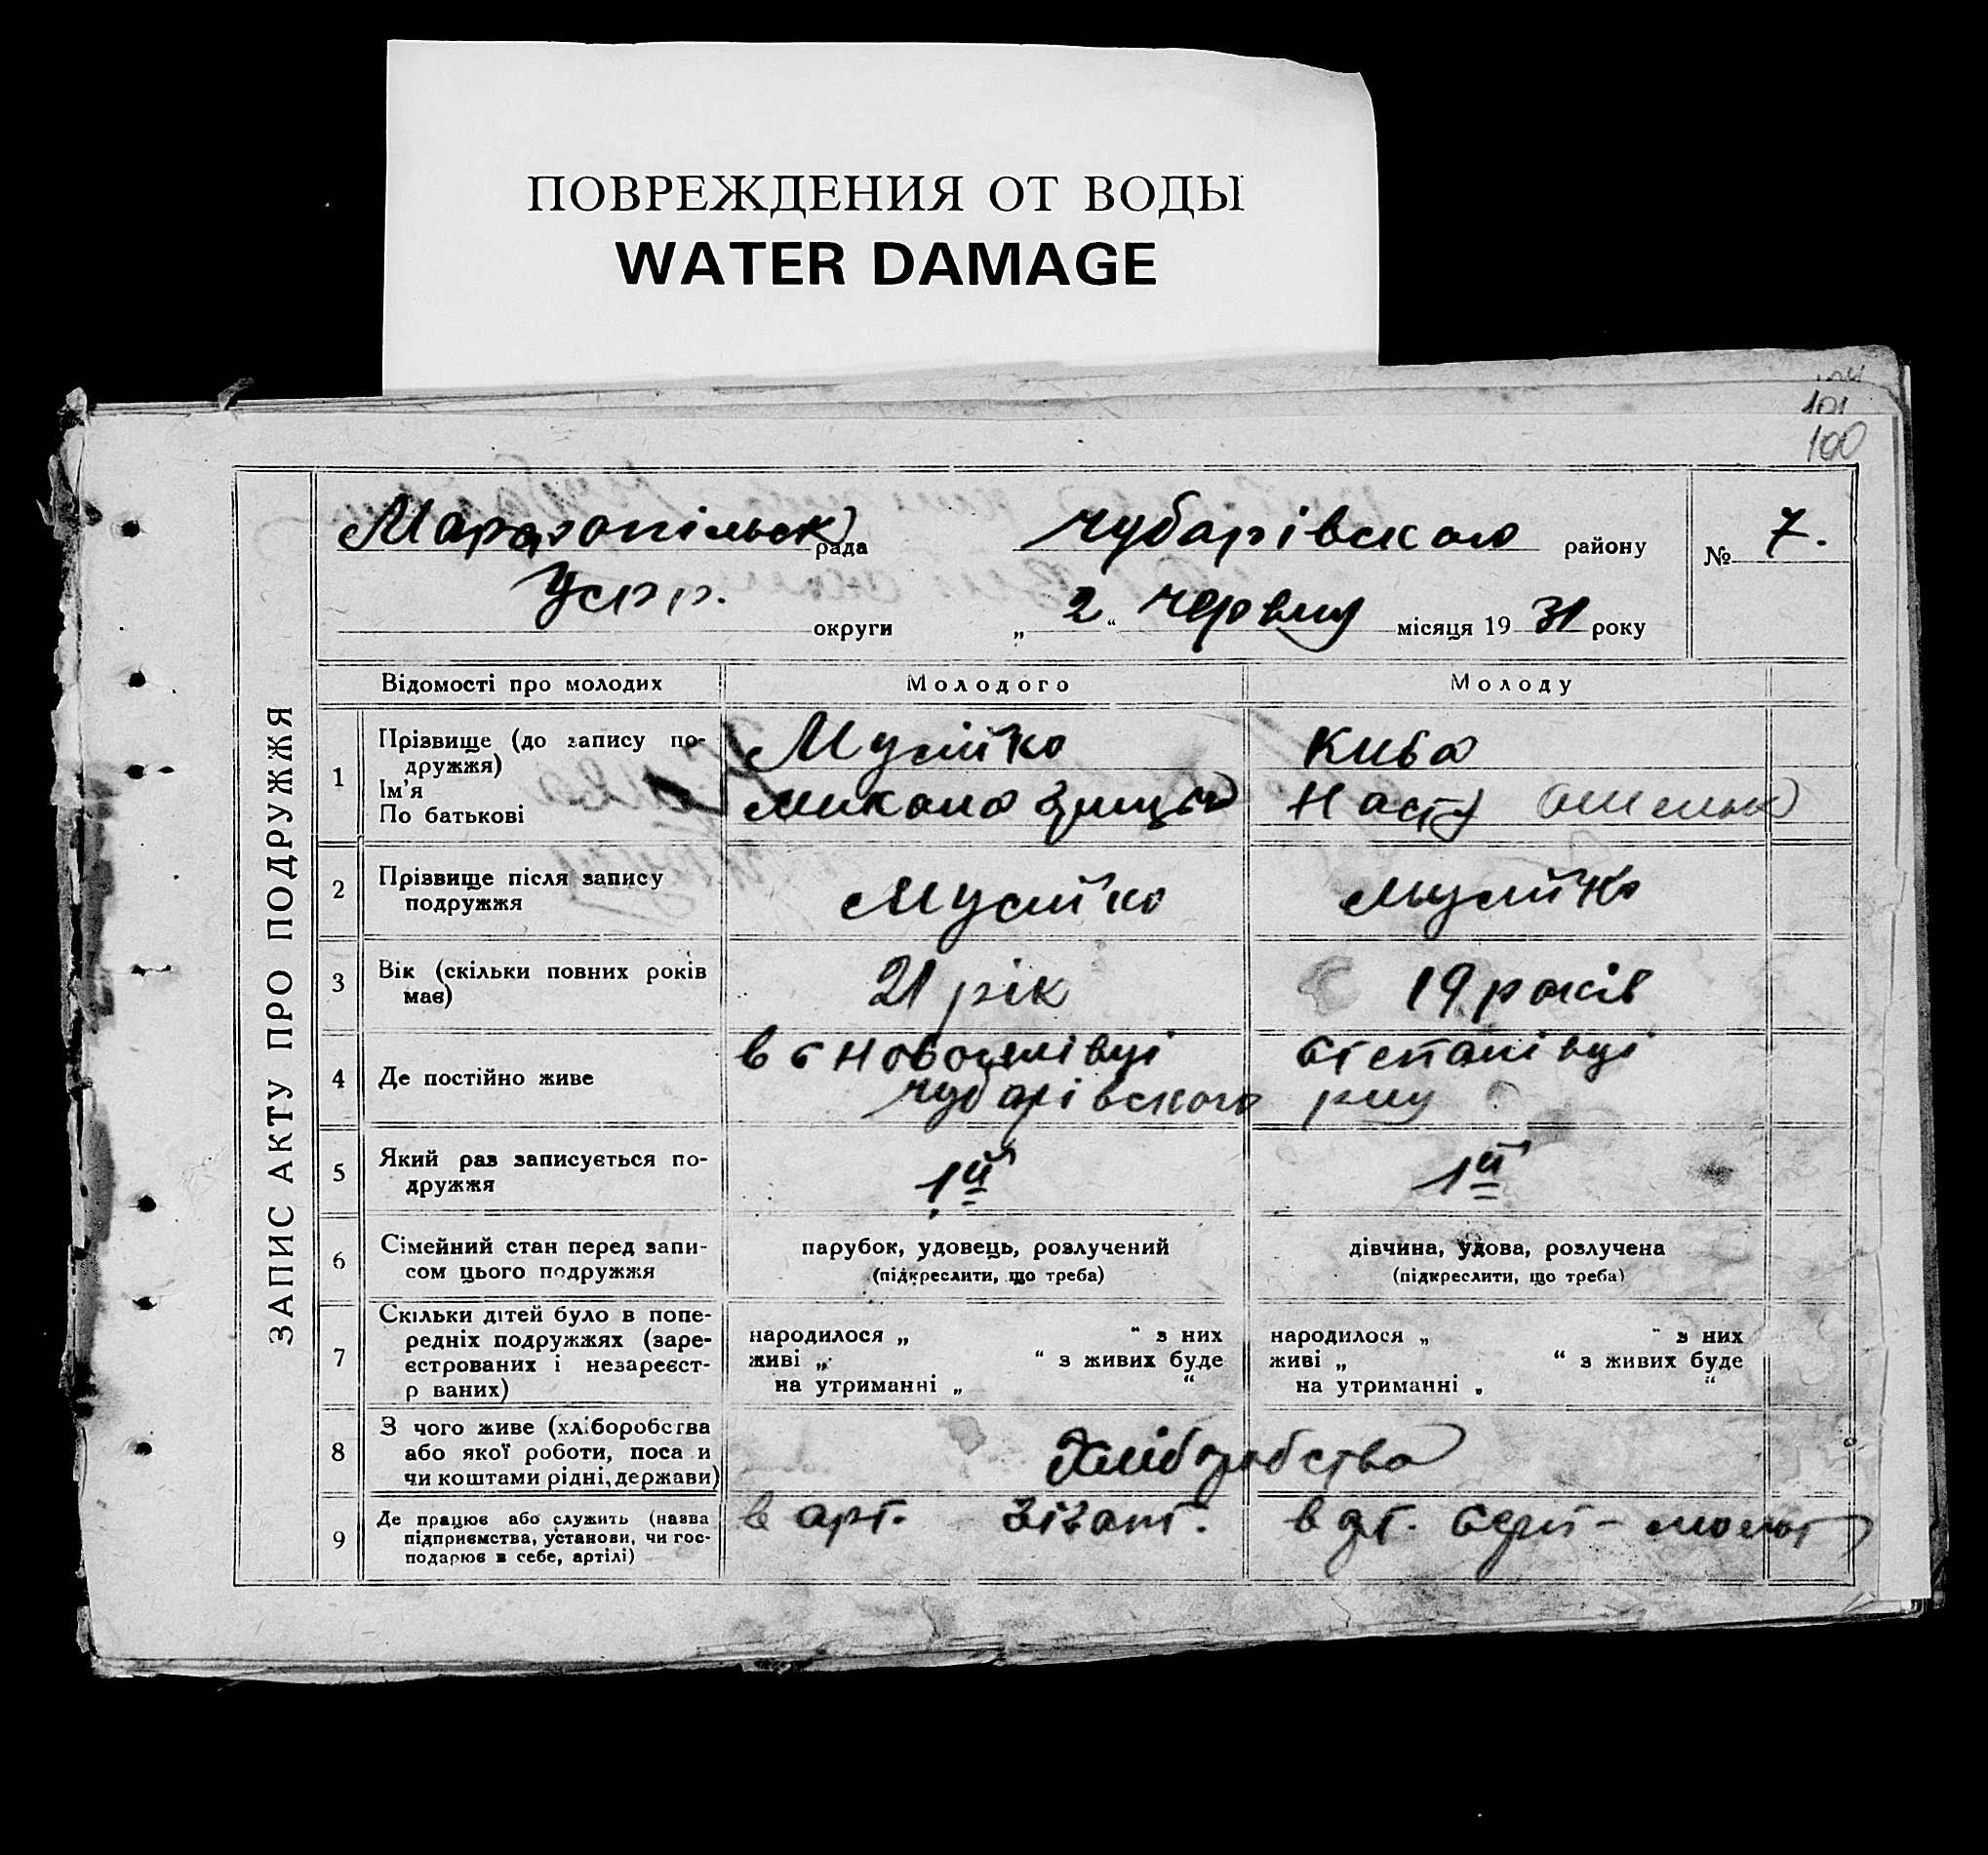 ПОВРЕЖДЕНИЯ ОТ ВОДЫ
WATER DAMAGE
101
100
ЗАПИС АКТУ ПРО ПОДРУЖЖЯ
рада Чубарівского району № 7.
Усрр. округи „ 2 “ червня місяця 19 31 року
Відомості про молодих Молодого Молоду
1 Прізвище (до запису по-
дружжя)
Ім'я
По батькові
Мусійко Кива
Микола Насту
2 Прізвище після запису
подружжя
Мусійко Мусійко
3 Вік (скільки повних років
має)
21 рік 19 років
4 Де постійно живе
в с Степанівці
Чубарівского рну
5 Який раз записується по-
дружжя
1й 1й
6 Сімейний стан перед запи-
сом цього подружжя
парубок, удовець, розлучений
(підкреслити, що треба)
дівчина, удова, розлучена
(підкреслити, що треба)
7 Скільки дітей було в попе-
редніх подружжях (заре-
єстрованих і незареєст-
р ваних)
народилося „ “ з них
живі „ “ з живих буде
на утриманні „ “
народилося „ “ з них
живі „ “ з живих буде
на утриманні „ “
8 З чого живе (хліборобства
або якої роботи, поса и
чи коштами рідні, держави)
Хліборобства
9 Де працює або служить (назва
підприємства, установи, чи гос-
подарює в себе, артілі)
в арт. Гігант. в арт. Серп-молот